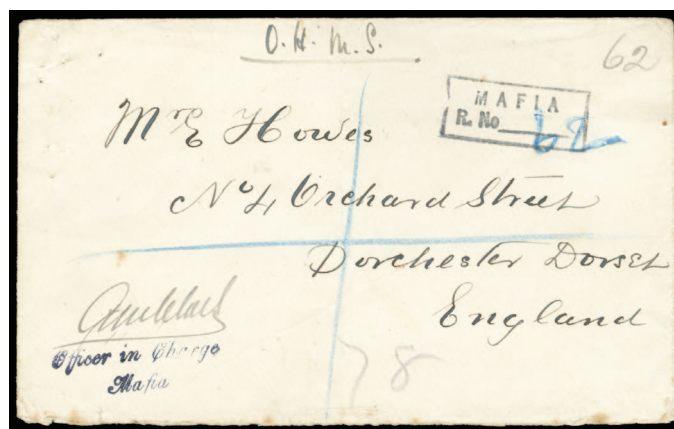 O. H. M. S.
62
MAFIA
R. No 62
Mr E Howes
No 4 Orchard Street
Dorchester Dorset
England
Officer in Charge
Mafia
78